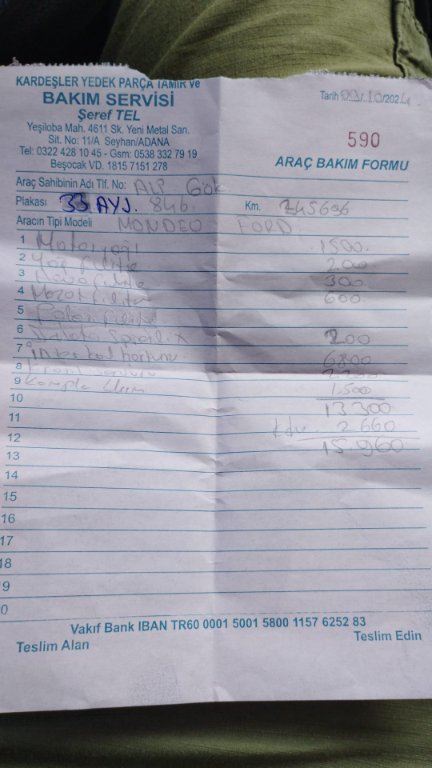 KARDEŞLER YEDEK PARÇA TAMİR ve
BAKIM SERVİSİ
Şeref TEL
Yeşiloba Mah. 4611 Sk. Yeni Metal San.
Sit. No: 11/A Seyhan/ADANA
Tel: 0322 428 10 45 - Gsm: 0538 332 79 19
Beşocak VD. 1815 7151 278
Tarih /10/2024
590
ARAÇ BAKIM FORMU
Araç Sahibinin Adı Tlf. No: Alp Gök
Plakası 33 AYJ. 846 Km. 245696
Aracın Tipi Modeli MONDEO FORD
1 Motor yağı 1500
2 Yağ filitre 200
3 Hava filitre 300
4 Mazot filitre 600
5 Polen filitre
6 200
7 hortumu 6800
8
9 Komple 1.500
10 13300
11 Kdv 2660
12 15960
13
14
15
16
17
18
9
0
Vakıf Bank IBAN TR60 0001 5001 5800 1157 6252 83
Teslim Alan Teslim Edin